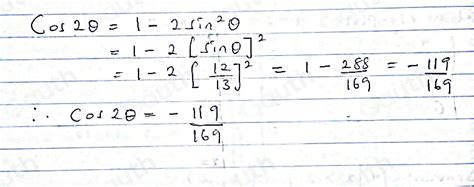 Cos 2θ = 1 - 2 sin²θ
= 1 - 2 [sin θ]²
= 1 - 2 [12/13]² = 1 - 288/169 = - 119/169
∴ Cos 2θ = - 119/169